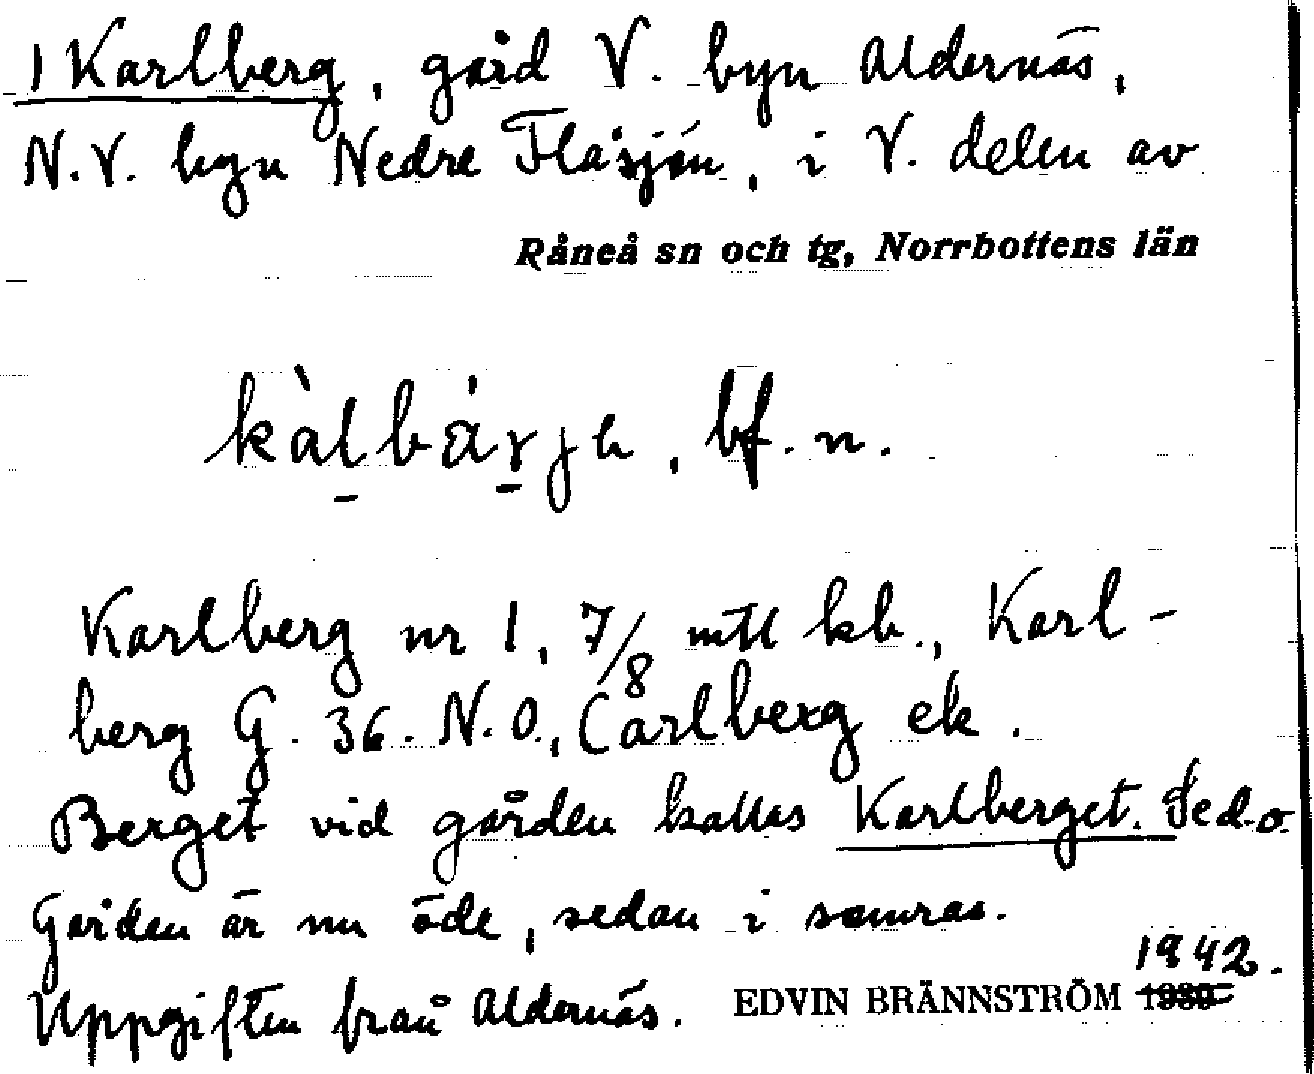 1 Karlberg, gård V. byn Aldernäs,
N.V. byn Nedre Flåsjön, i V. delen av
Råneå sn och tg, Norrbottens län
kàlbárjh, bf. n.
Karlberg nr 1, 7/8 mtl kb., Karl-
berg G. 36. N.O., Carlberg ek.
Berget vid gården kallas Karlberget. Sed.o.
Gården är nu öde, sedan i somras.
Uppgiften från Aldernäs. EDVIN BRÄNNSTRÖM 1942.